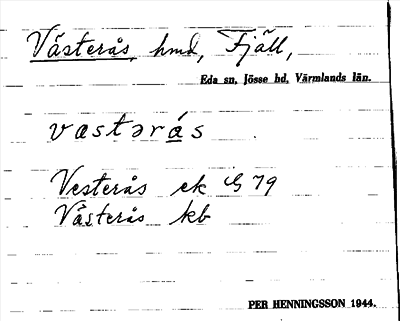 Västerås, hmd, Fjäll,
Eda sn, Jösse hd, Värmlands län.
vastərás
Vesterås ek G 79
Västerås kb
PER HENNINGSSON 1944.